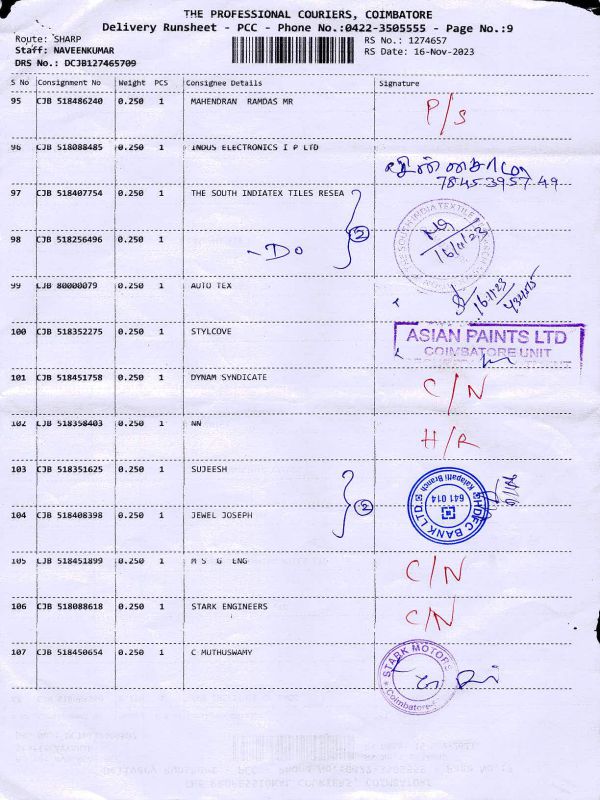 THE PROFESSIONAL COURIERS, COIMBATORE
Delivery Runsheet - PCC - Phone No.:0422-3505555 - Page No.:9
Route: SHARP
RS No.: 1274657
Staff: NAVEENKUMAR
RS Date: 16-Nov-2023
DRS No.: DCJB127465709
S No Consignment No Weight PCS Consignee Details Signature
95 CJB 518486240 0.250 1 MAHENDRAN RAMDAS MR P/S
96 CJB 518088485 0.250 1 INDUS ELECTRONICS I P LTD
78453957 49
97 CJB 518407754 0.250 1 THE SOUTH INDIATEX TILES RESEA
98 CJB 518256496 0.250 1 -Do 2 16/11/23
99 CJB 80000079 0.250 1 AUTO TEX 16/11/23
100 CJB 518352275 0.250 1 STYLCOVE ASIAN PAINTS LTD
COIMBATORE UNIT
101 CJB 518451758 0.250 1 DYNAM SYNDICATE C/N
102 CJB 518358403 0.250 1 NN H/R
103 CJB 518351625 0.250 1 SUJEESH 2
HDFC BANK LTD
641 014
Kalapatti Branch
104 CJB 518408398 0.250 1 JEWEL JOSEPH
105 CJB 518451899 0.250 1 M S G ENG C/N
106 CJB 518088618 0.250 1 STARK ENGINEERS C/N
107 CJB 518450654 0.250 1 C MUTHUSWAMY STARK MOTORS
Coimbatore